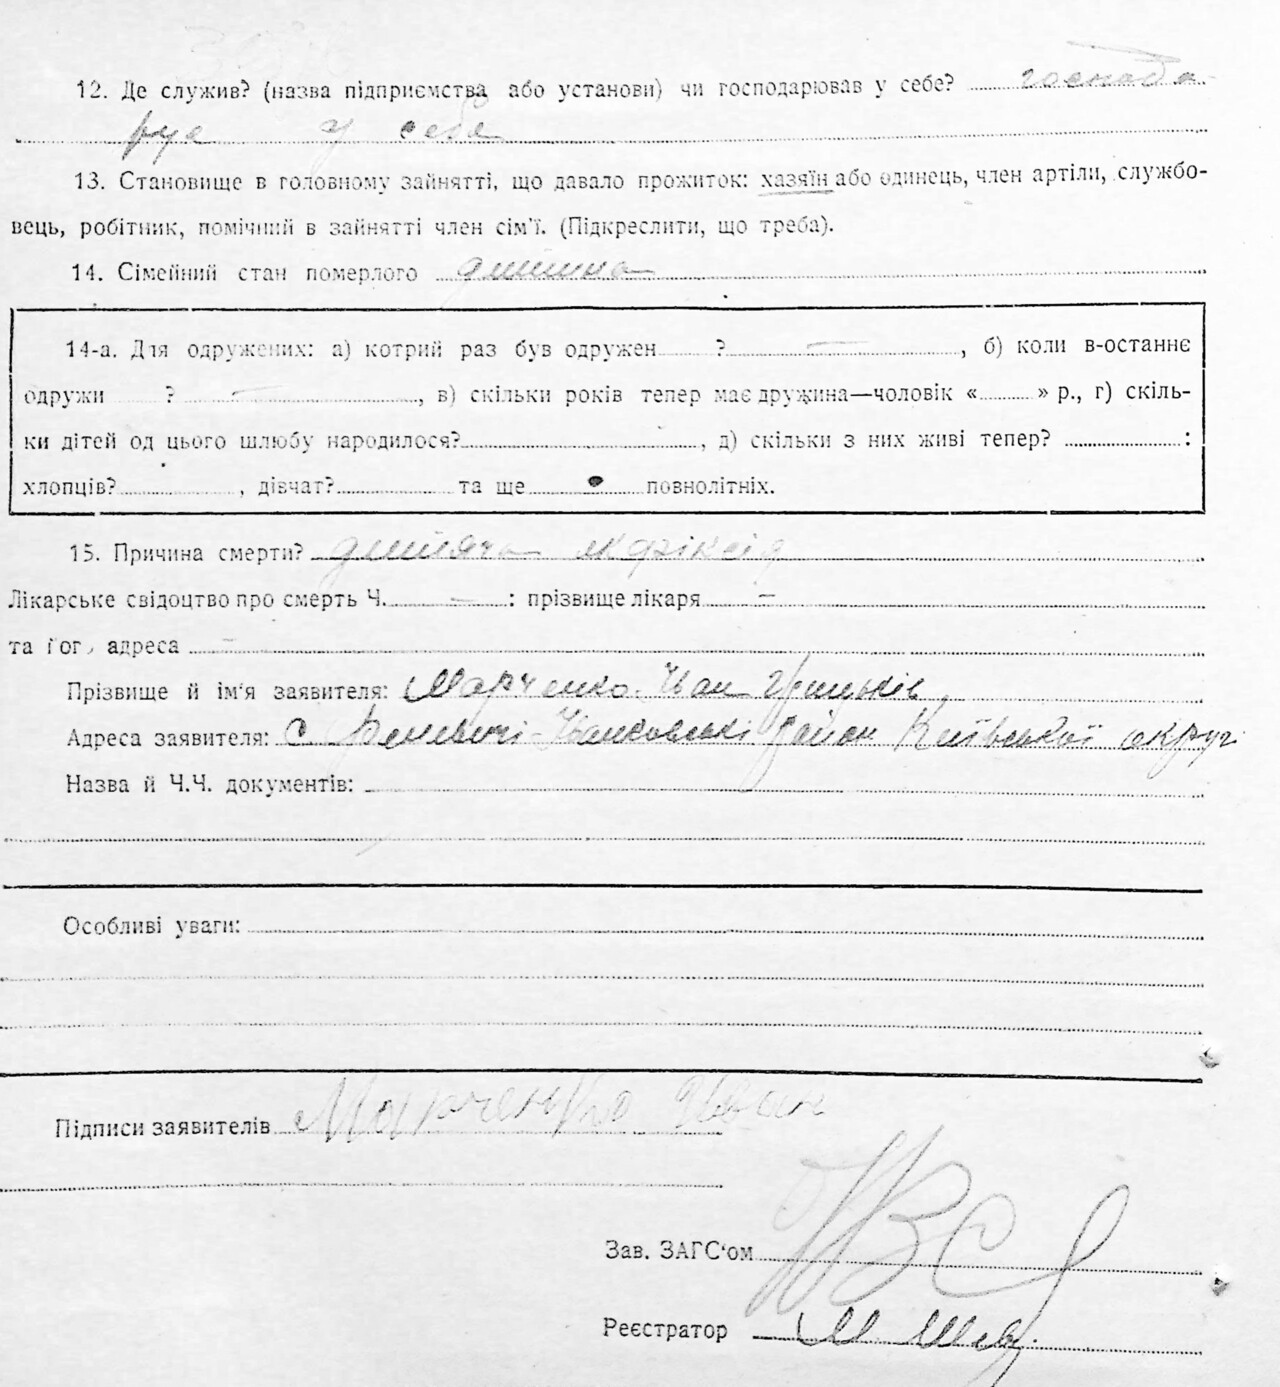 12. Де служив? (назва підприємства або установи) чи господарював у себе? господа
рує у себе
13. Становище в головному зайнятті, що давало прожиток: хазяїн або одинець, член артіли, службо-
вець, робітник, помічний в зайнятті член сім'ї. (Підкреслити, що треба).
14. Сімейний стан померлого дитина
14-а. Для одружених: а) котрий раз був одружен ? —, б) коли в-останнє
одружи ? —, в) скільки років тепер має дружина—чоловік « » р., г) скіль-
ки дітей од цього шлюбу народилося?, д) скільки з них живі тепер? :
хлопців?, дівчат? та ще повнолітніх.
15. Причина смерти? дитяча
Лікарське свідоцтво про смерть Ч. — : прізвище лікаря —
та його адреса —
Прізвище й ім'я заявителя: Марченко Іван
Адреса заявителя: С Іванковський район Київської округ
Назва й Ч.Ч. документів:
Особливі уваги:
Підписи заявителів Марченко Иван
Зав. ЗАГС'ом
Реєстратор М.